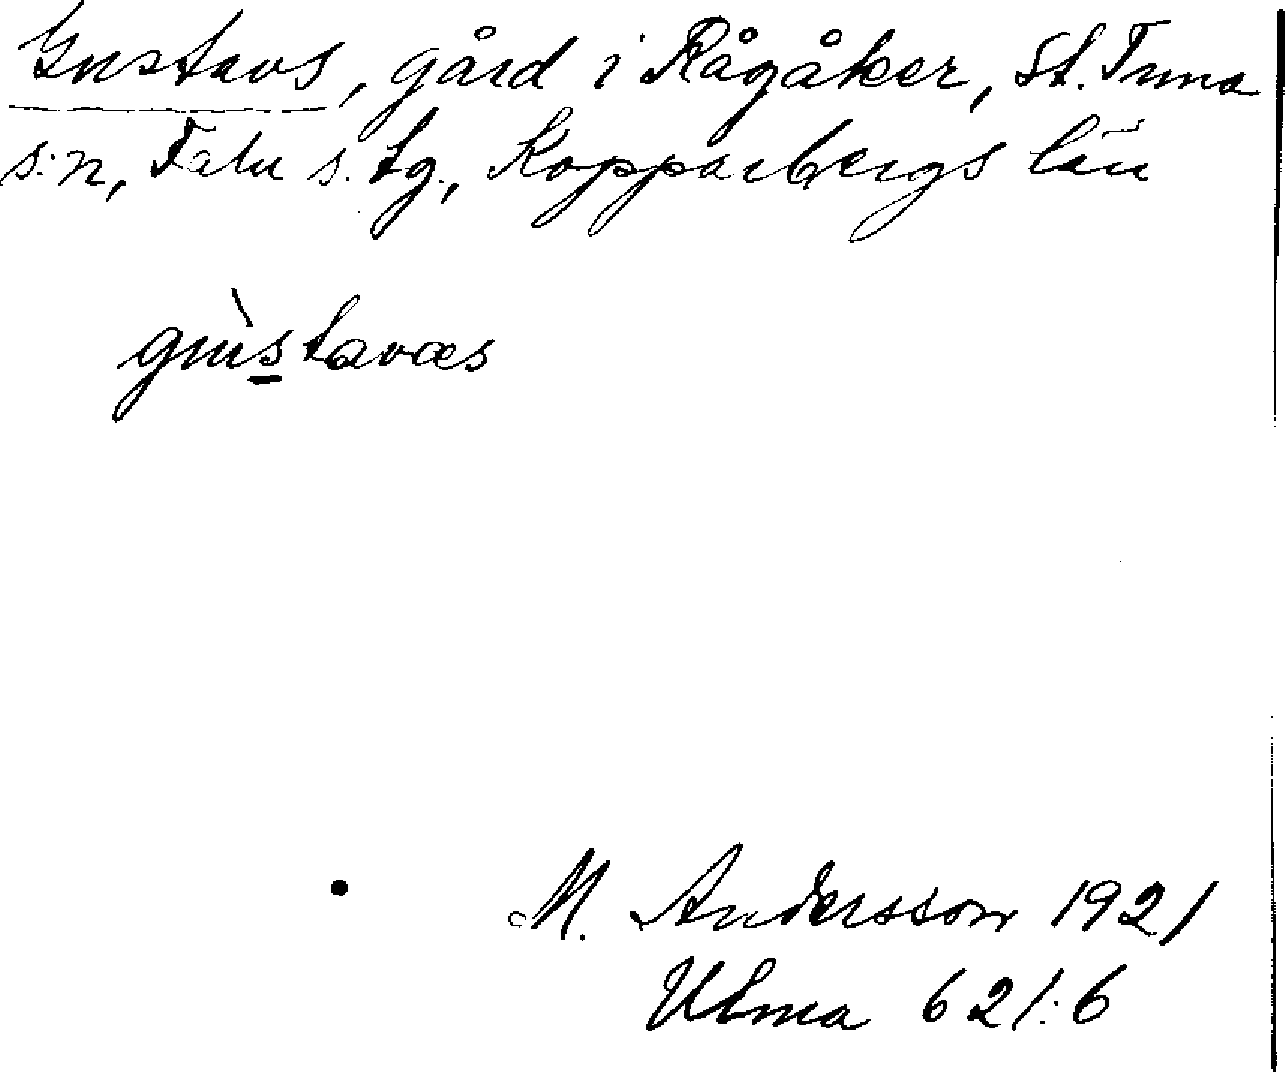 Gustavs, gård i Rågåker, St. Tuna
s:n, Falu s. tg., Kopparbergs län
gùstavæs
M. Andersson 1921
Ulma 621:6